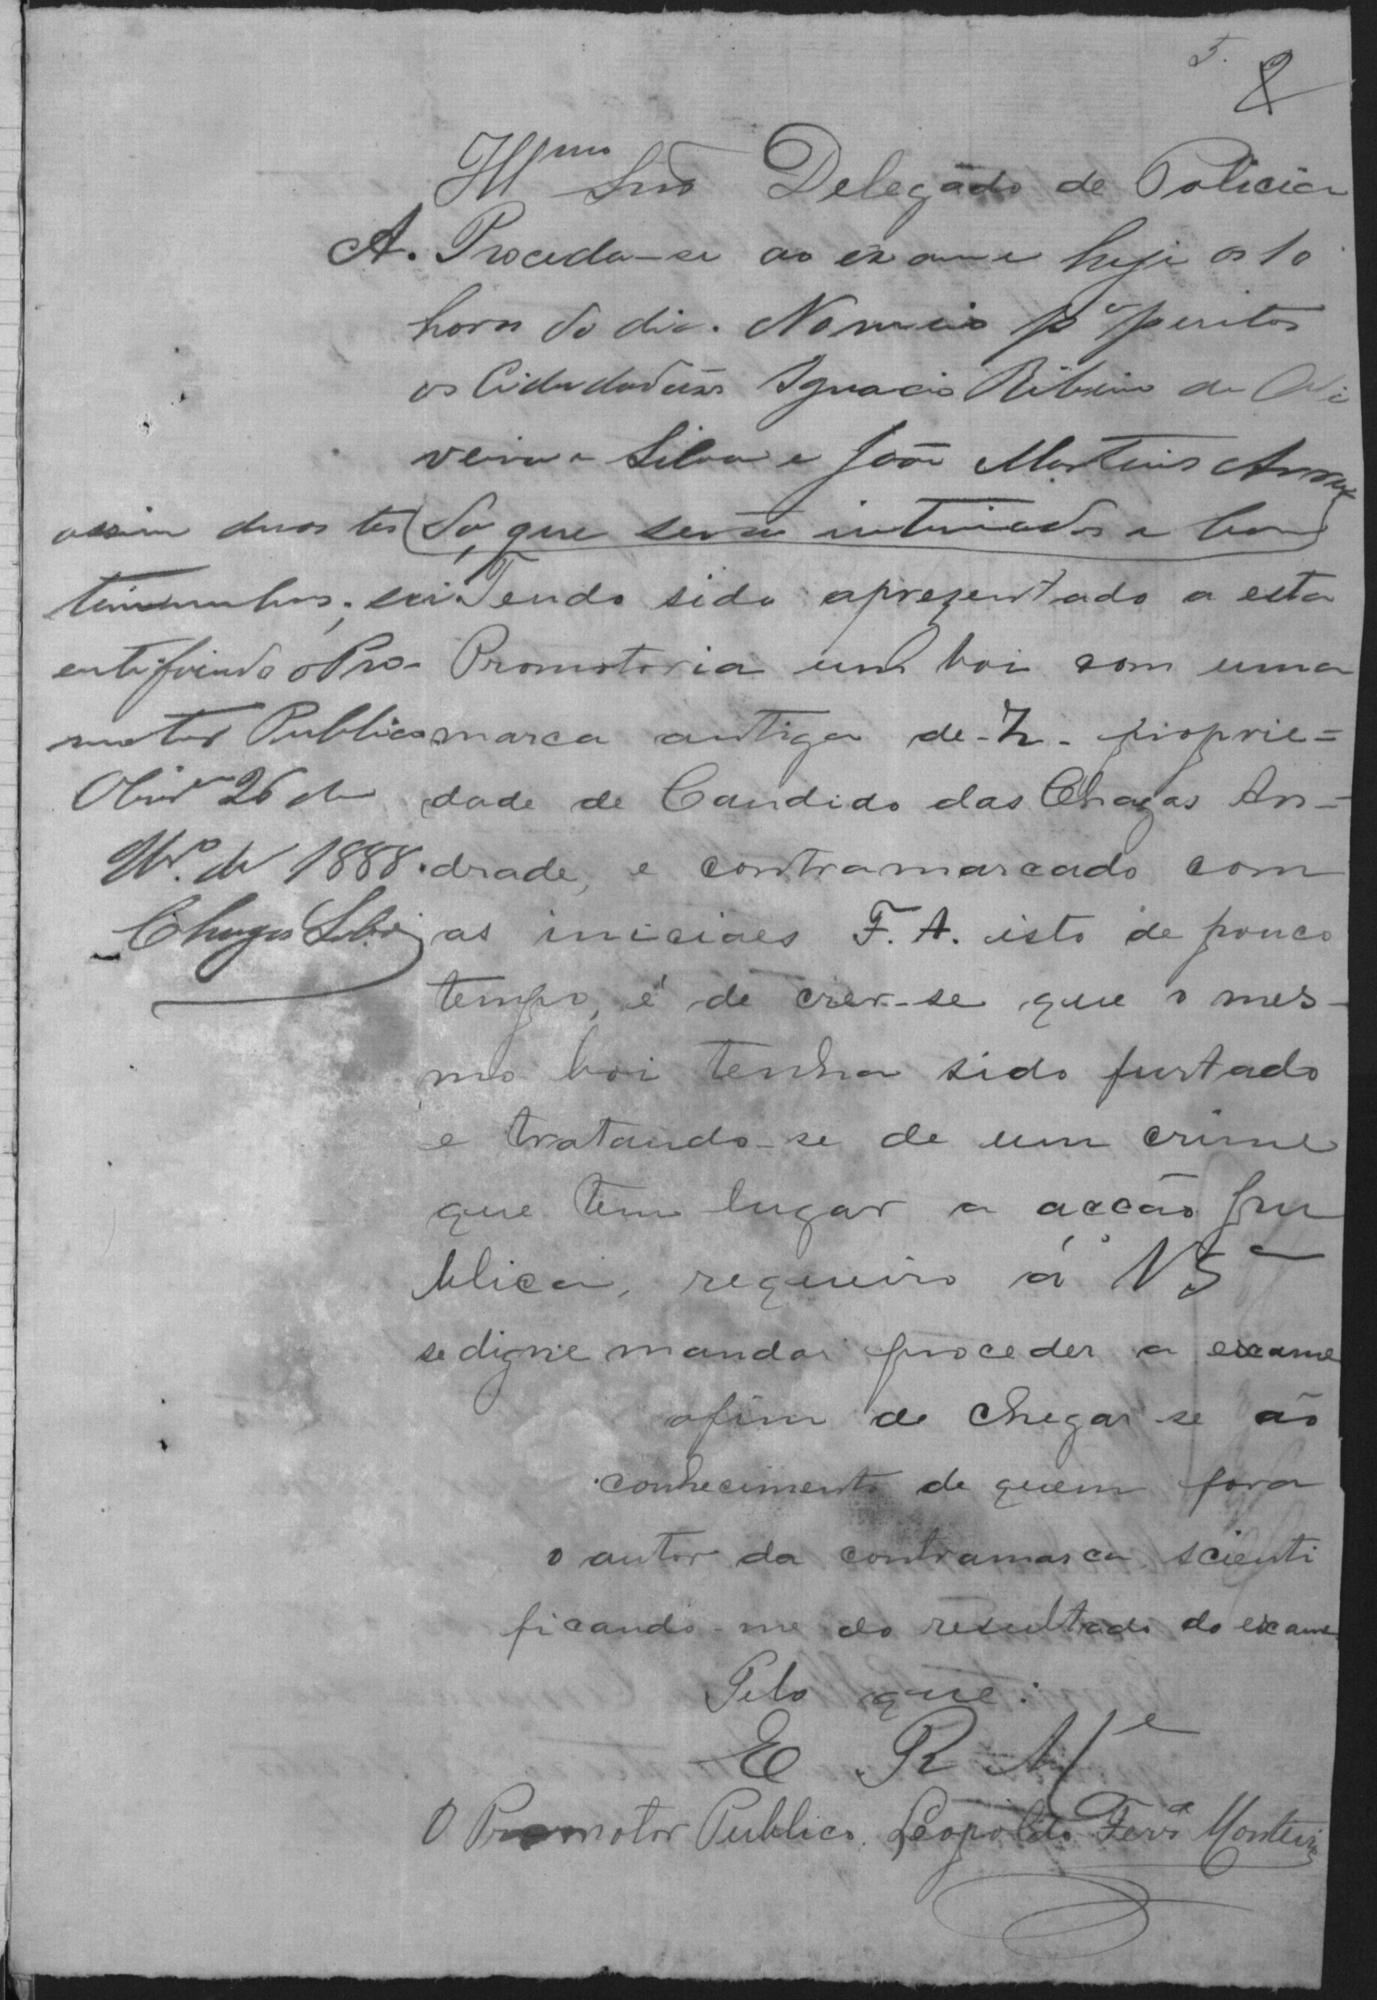 5.
2
Illmo Snr Delegado de Policia
A. Proceda-se ao exame hoje as 10
horas do dia. Nomeio pa peritos
os Cidadadãos Ignacio Ribeiro de Oli
veira e Silva e João Martins
do, que serão intimados e bem
assim duas tes
timunhas, sci
entificando o Pro-
motor Publico
26 de
9br.o de 1888.
Chagas
Tendo sido aprezentado a esta
Promotoria um boi com uma
marca antiga de - Z - proprie=
dade de Candido das Chagas An=
drade, e contramarcado com
as iniciaes F. A. isto de pouco
tempo, é de crer-se que o mes-
mo boi tenha sido furtado
e tratando-se de um crime
que tem lugar a acção pu
blica, requeiro á V Sa
se digne mandar proceder a exame
afim de chegar-se ao
conhecimento de quem fora
o autor da contramarca, scienti
ficando-me do resultado do exame
Pelo que:
E R Me
O Promotor Publico. Leopoldo Ferra Monteiro